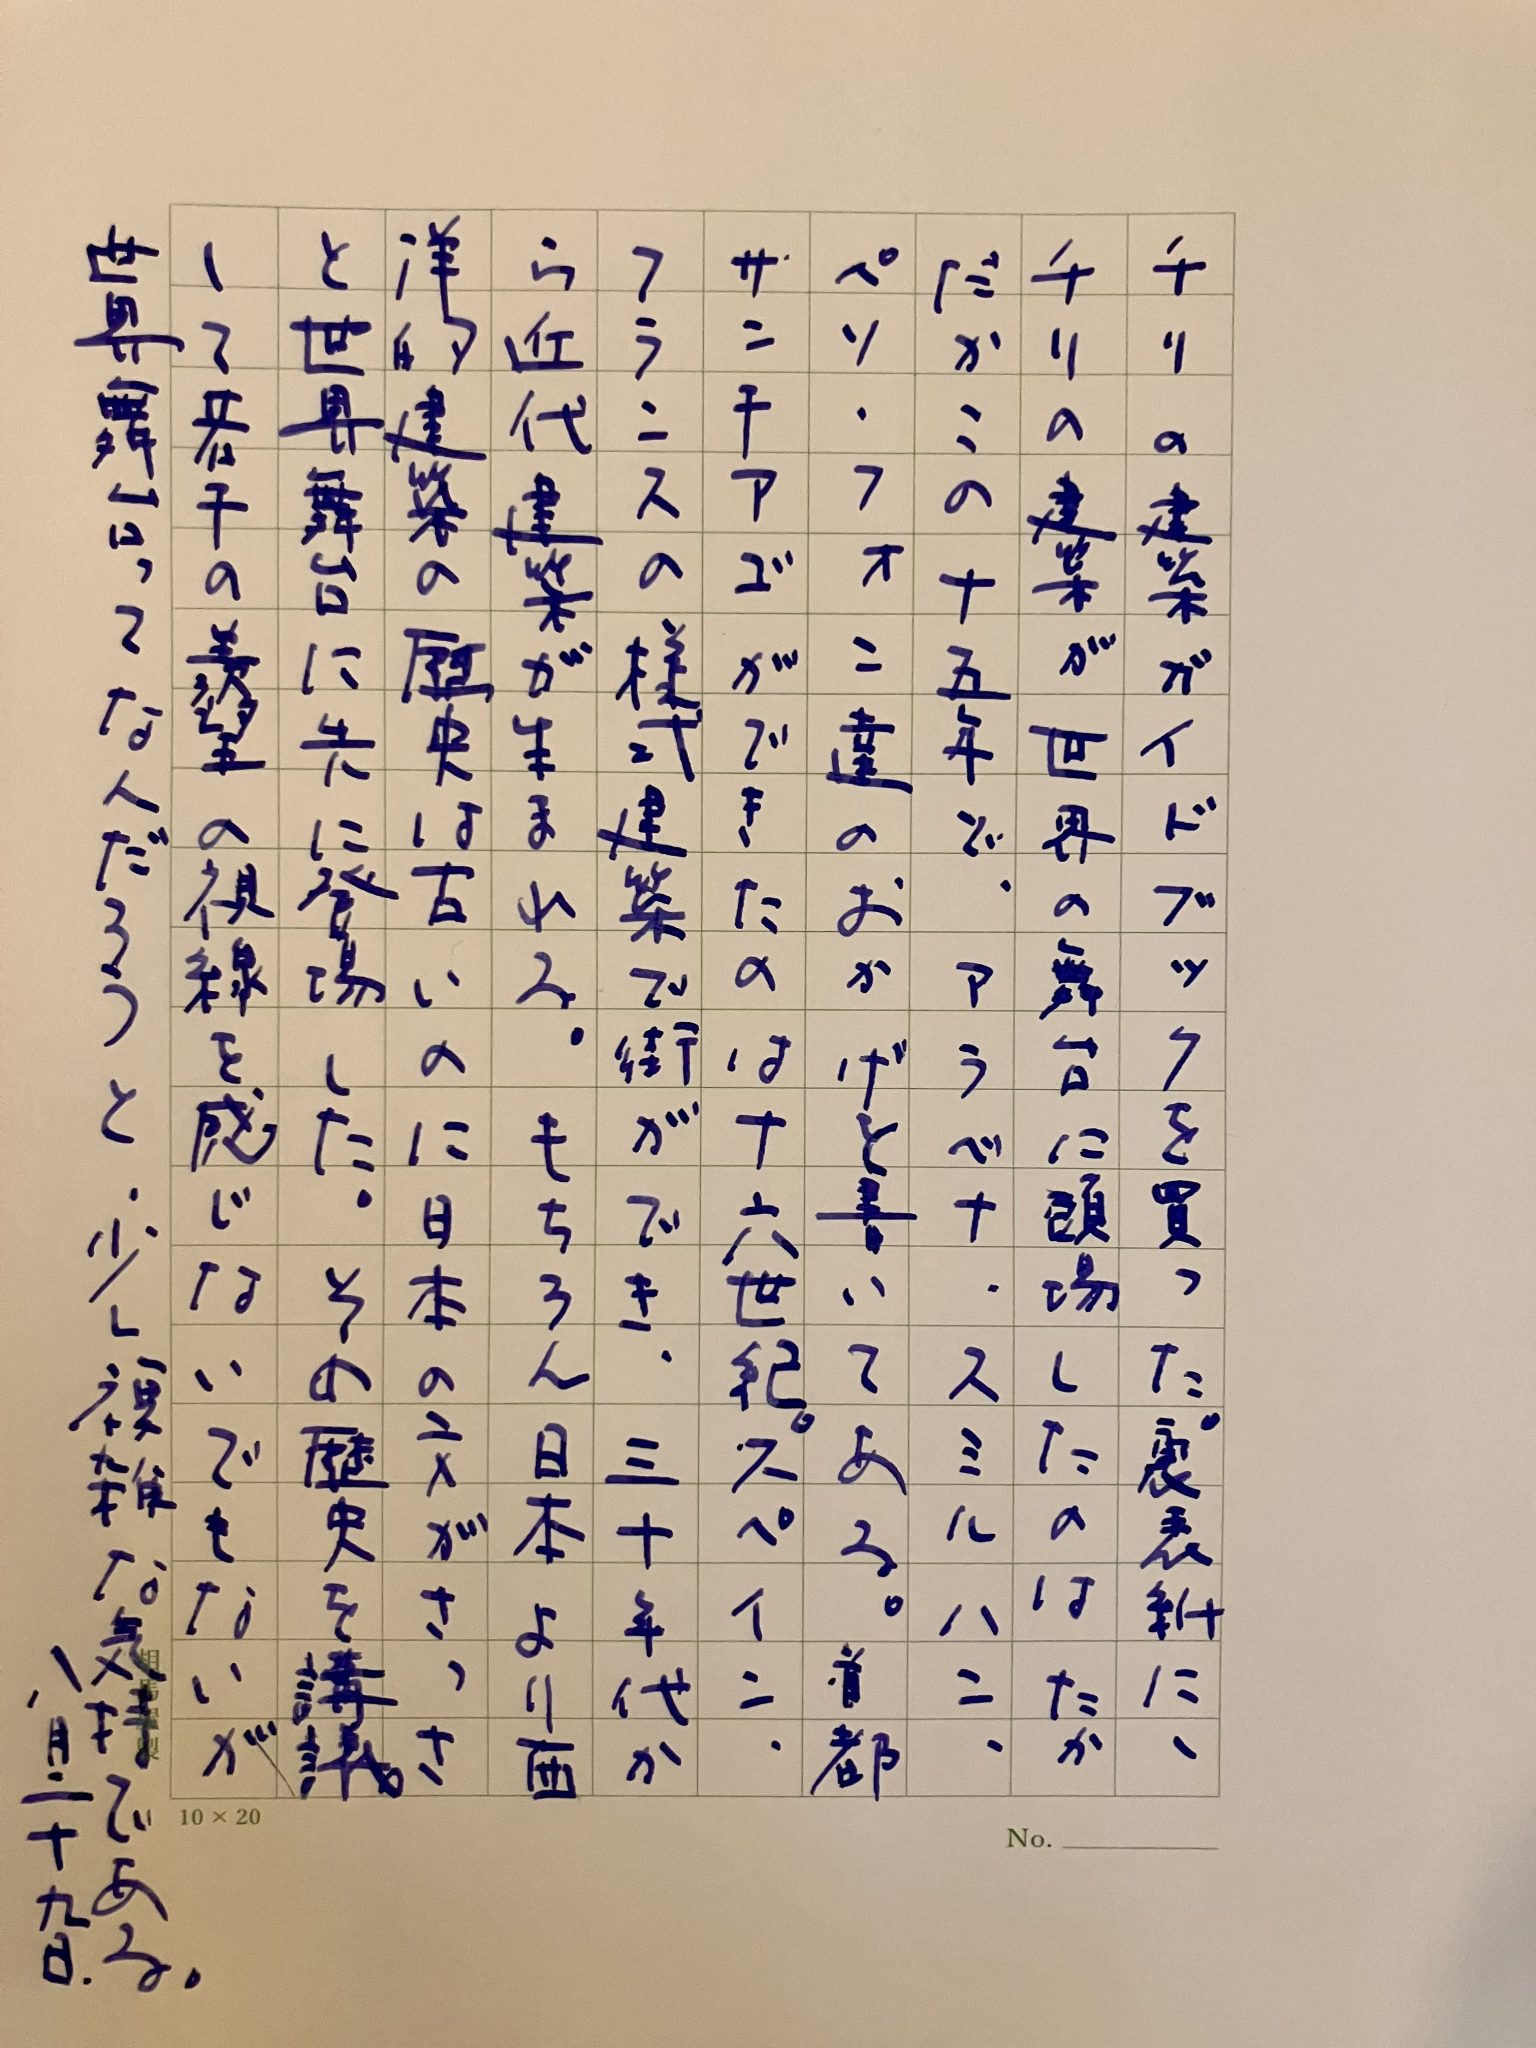 チリの建築ガイドブックを買った。裏表紙に、
チリの建築が世界の舞台に登場したのはたか
だかこの十五年で、アラベナ・スミルハン、
ペソ・フォン達のおかげと書いてある。首都
サンチアゴができたのは十六世紀。スペイン・
フランスの様式建築で街ができ、三十年代か
ら近代建築が生まれる。もちろん日本より西
洋的建築の歴史は古いのに日本の文がさっさ
と世界舞台に先に登場した。その歴史を講義。
して若干の羨望の視線を感じないでもないが
世界舞台ってなんだろうと、少し複雑な気持である。
八月二十九日.
10 × 20
No.